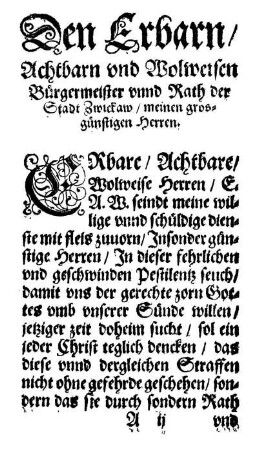 Den Erbarn/
Achtbarn vnd Wolweisen
Bürgermeister vnnd Rath der
Stadt Zwickaw/ meinen gros-
günstigen Herren.
ERbare/ Achtbare/
Wolweise Herren/ E.
A. W. seindt meine wil-
lige vnnd schüldige dien-
ste mit fleis zuuorn/ Insonder gün-
stige Herren/ In dieser fehrlichen
vnd geschwinden Pestilentz seuch/
damit vns der gerechte zorn Got-
tes vmb vnserer Sünde willen/
jetziger zeit doheim sucht/ sol ein
jeder Christ teglich dencken/ das
diese vnnd dergleichen Straffen
nicht ohne gefehrde geschehen/ son-
dern das sie durch sondern Rath
A ij vnd